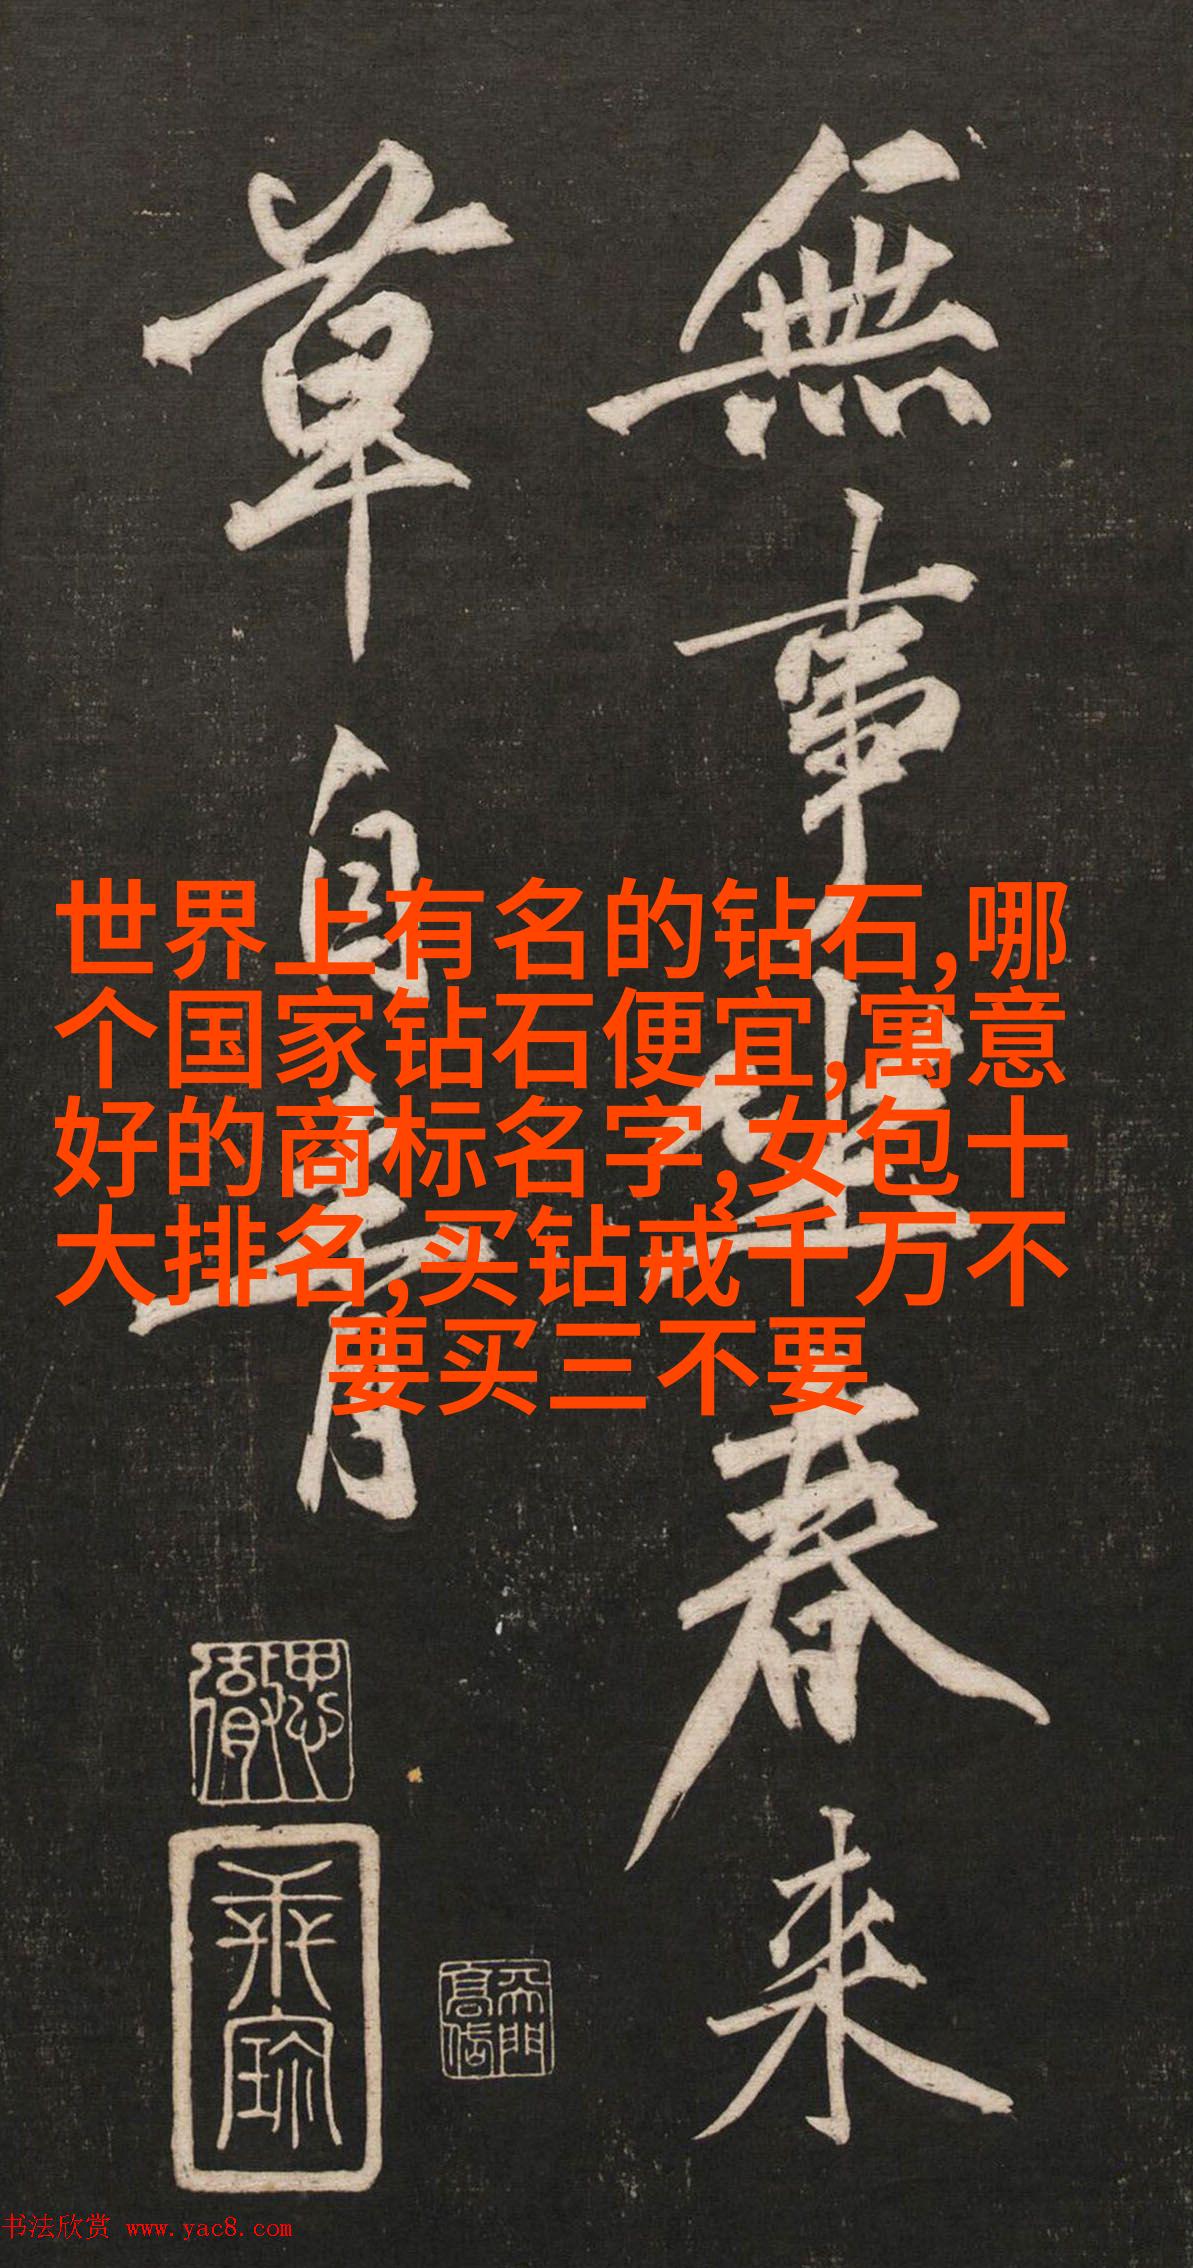 無事坐春来
草自青
世界上有名的钻石,哪
个国家钻石便宜,寓意
好的商标名字,女包十
大排名,买钻戒千万不
要买三不要
书法欣赏 www.yac8.com